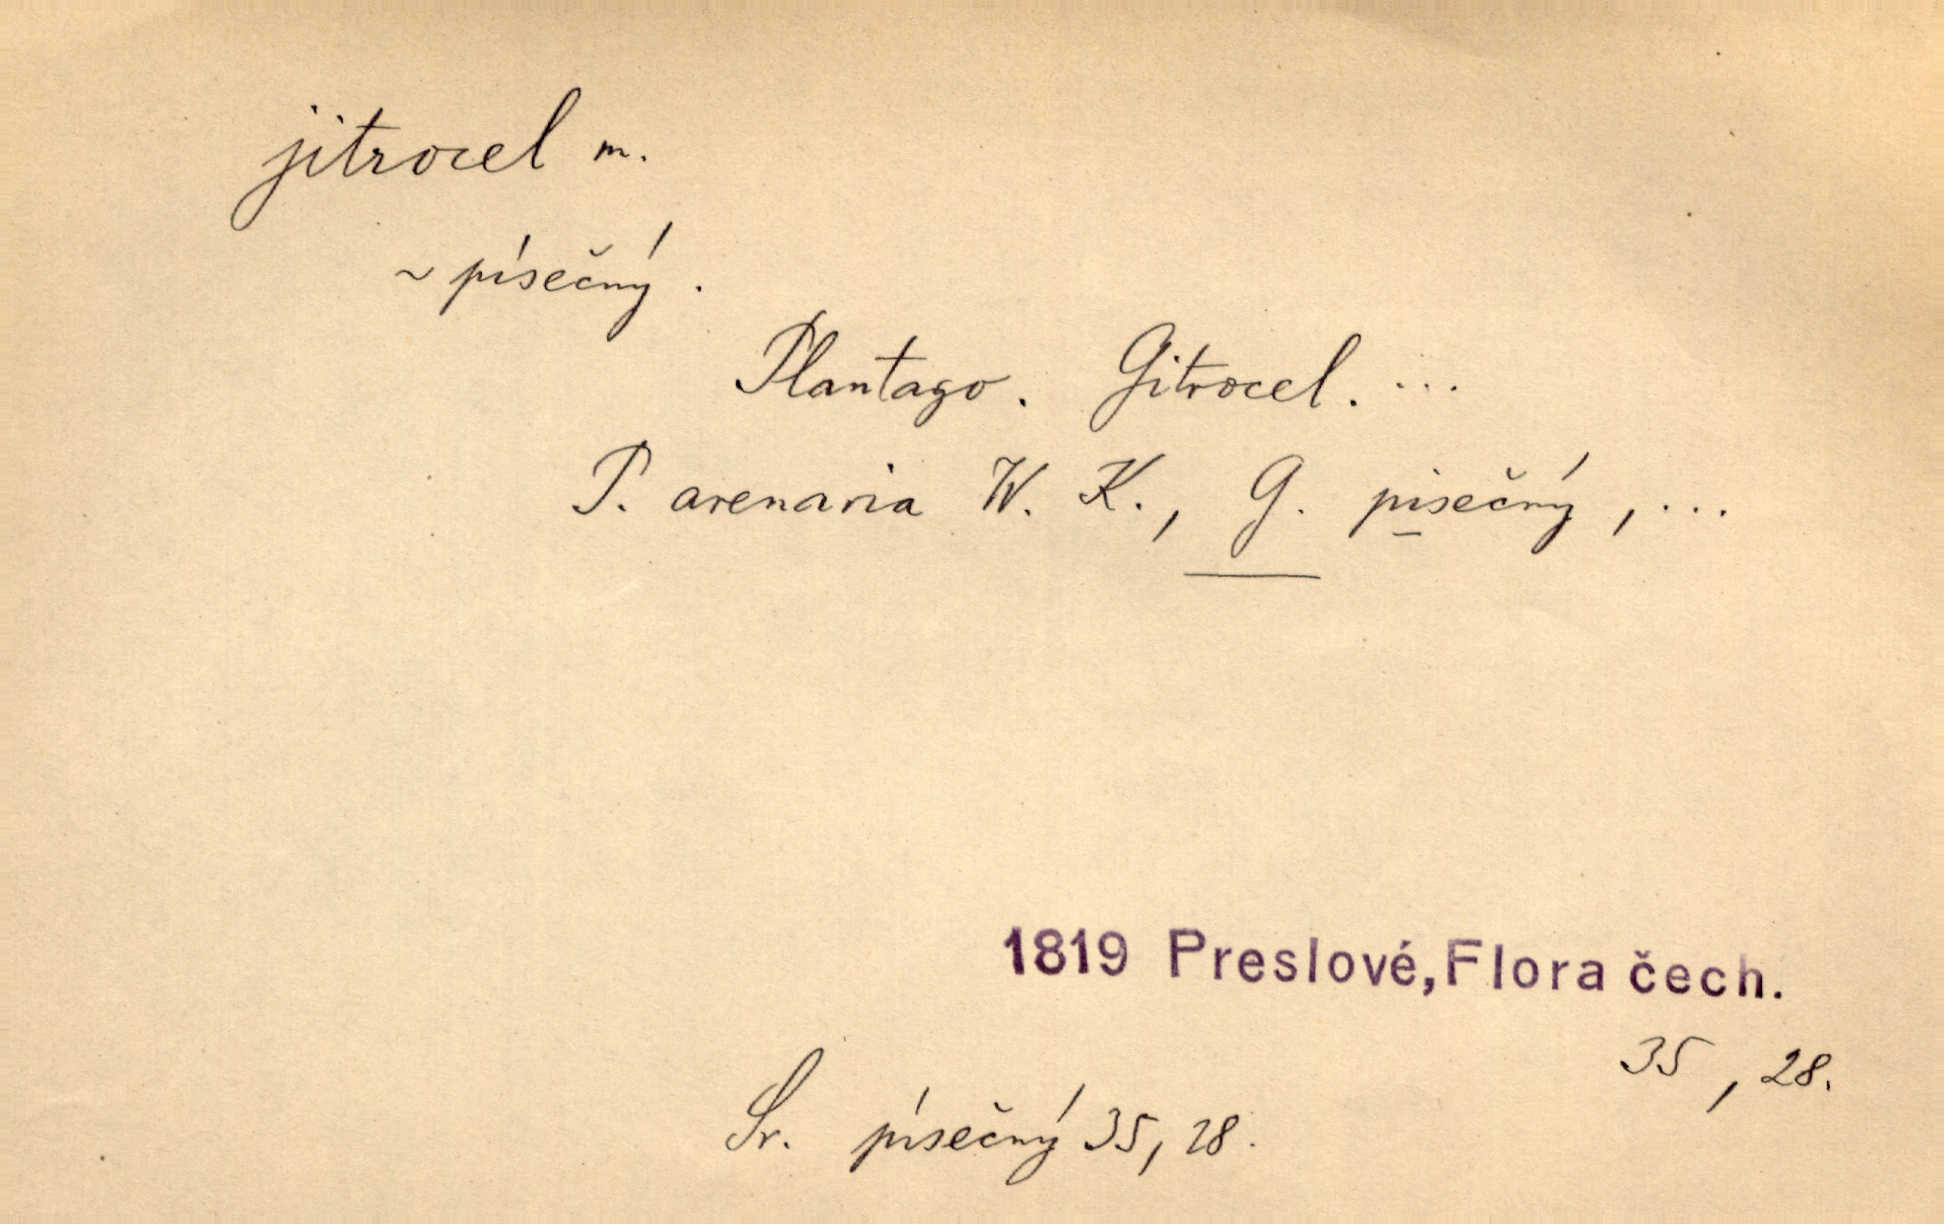 jitrocel m.
~ písečný.
Plantago. Gitrocel. ...
P. arenaria W. K., G. pisečný, ...
1819 Preslové, Flora čech.
35, 28.
Sr. písečný 35, 28.